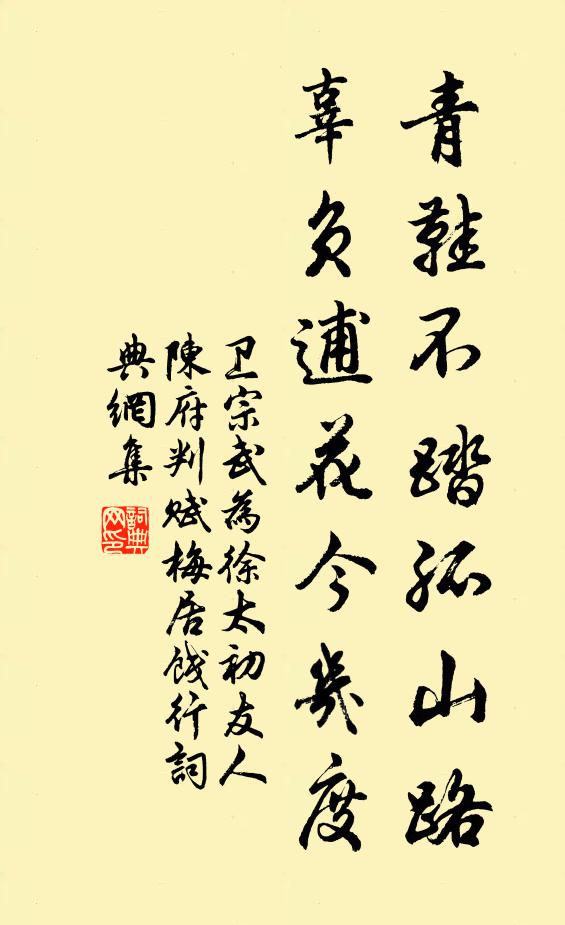 青鞵不踏孤山路
辜負逋花今幾度
卫宗武為徐太初友人
陳府判赋梅居餞行詞
典網集
詞典
网印